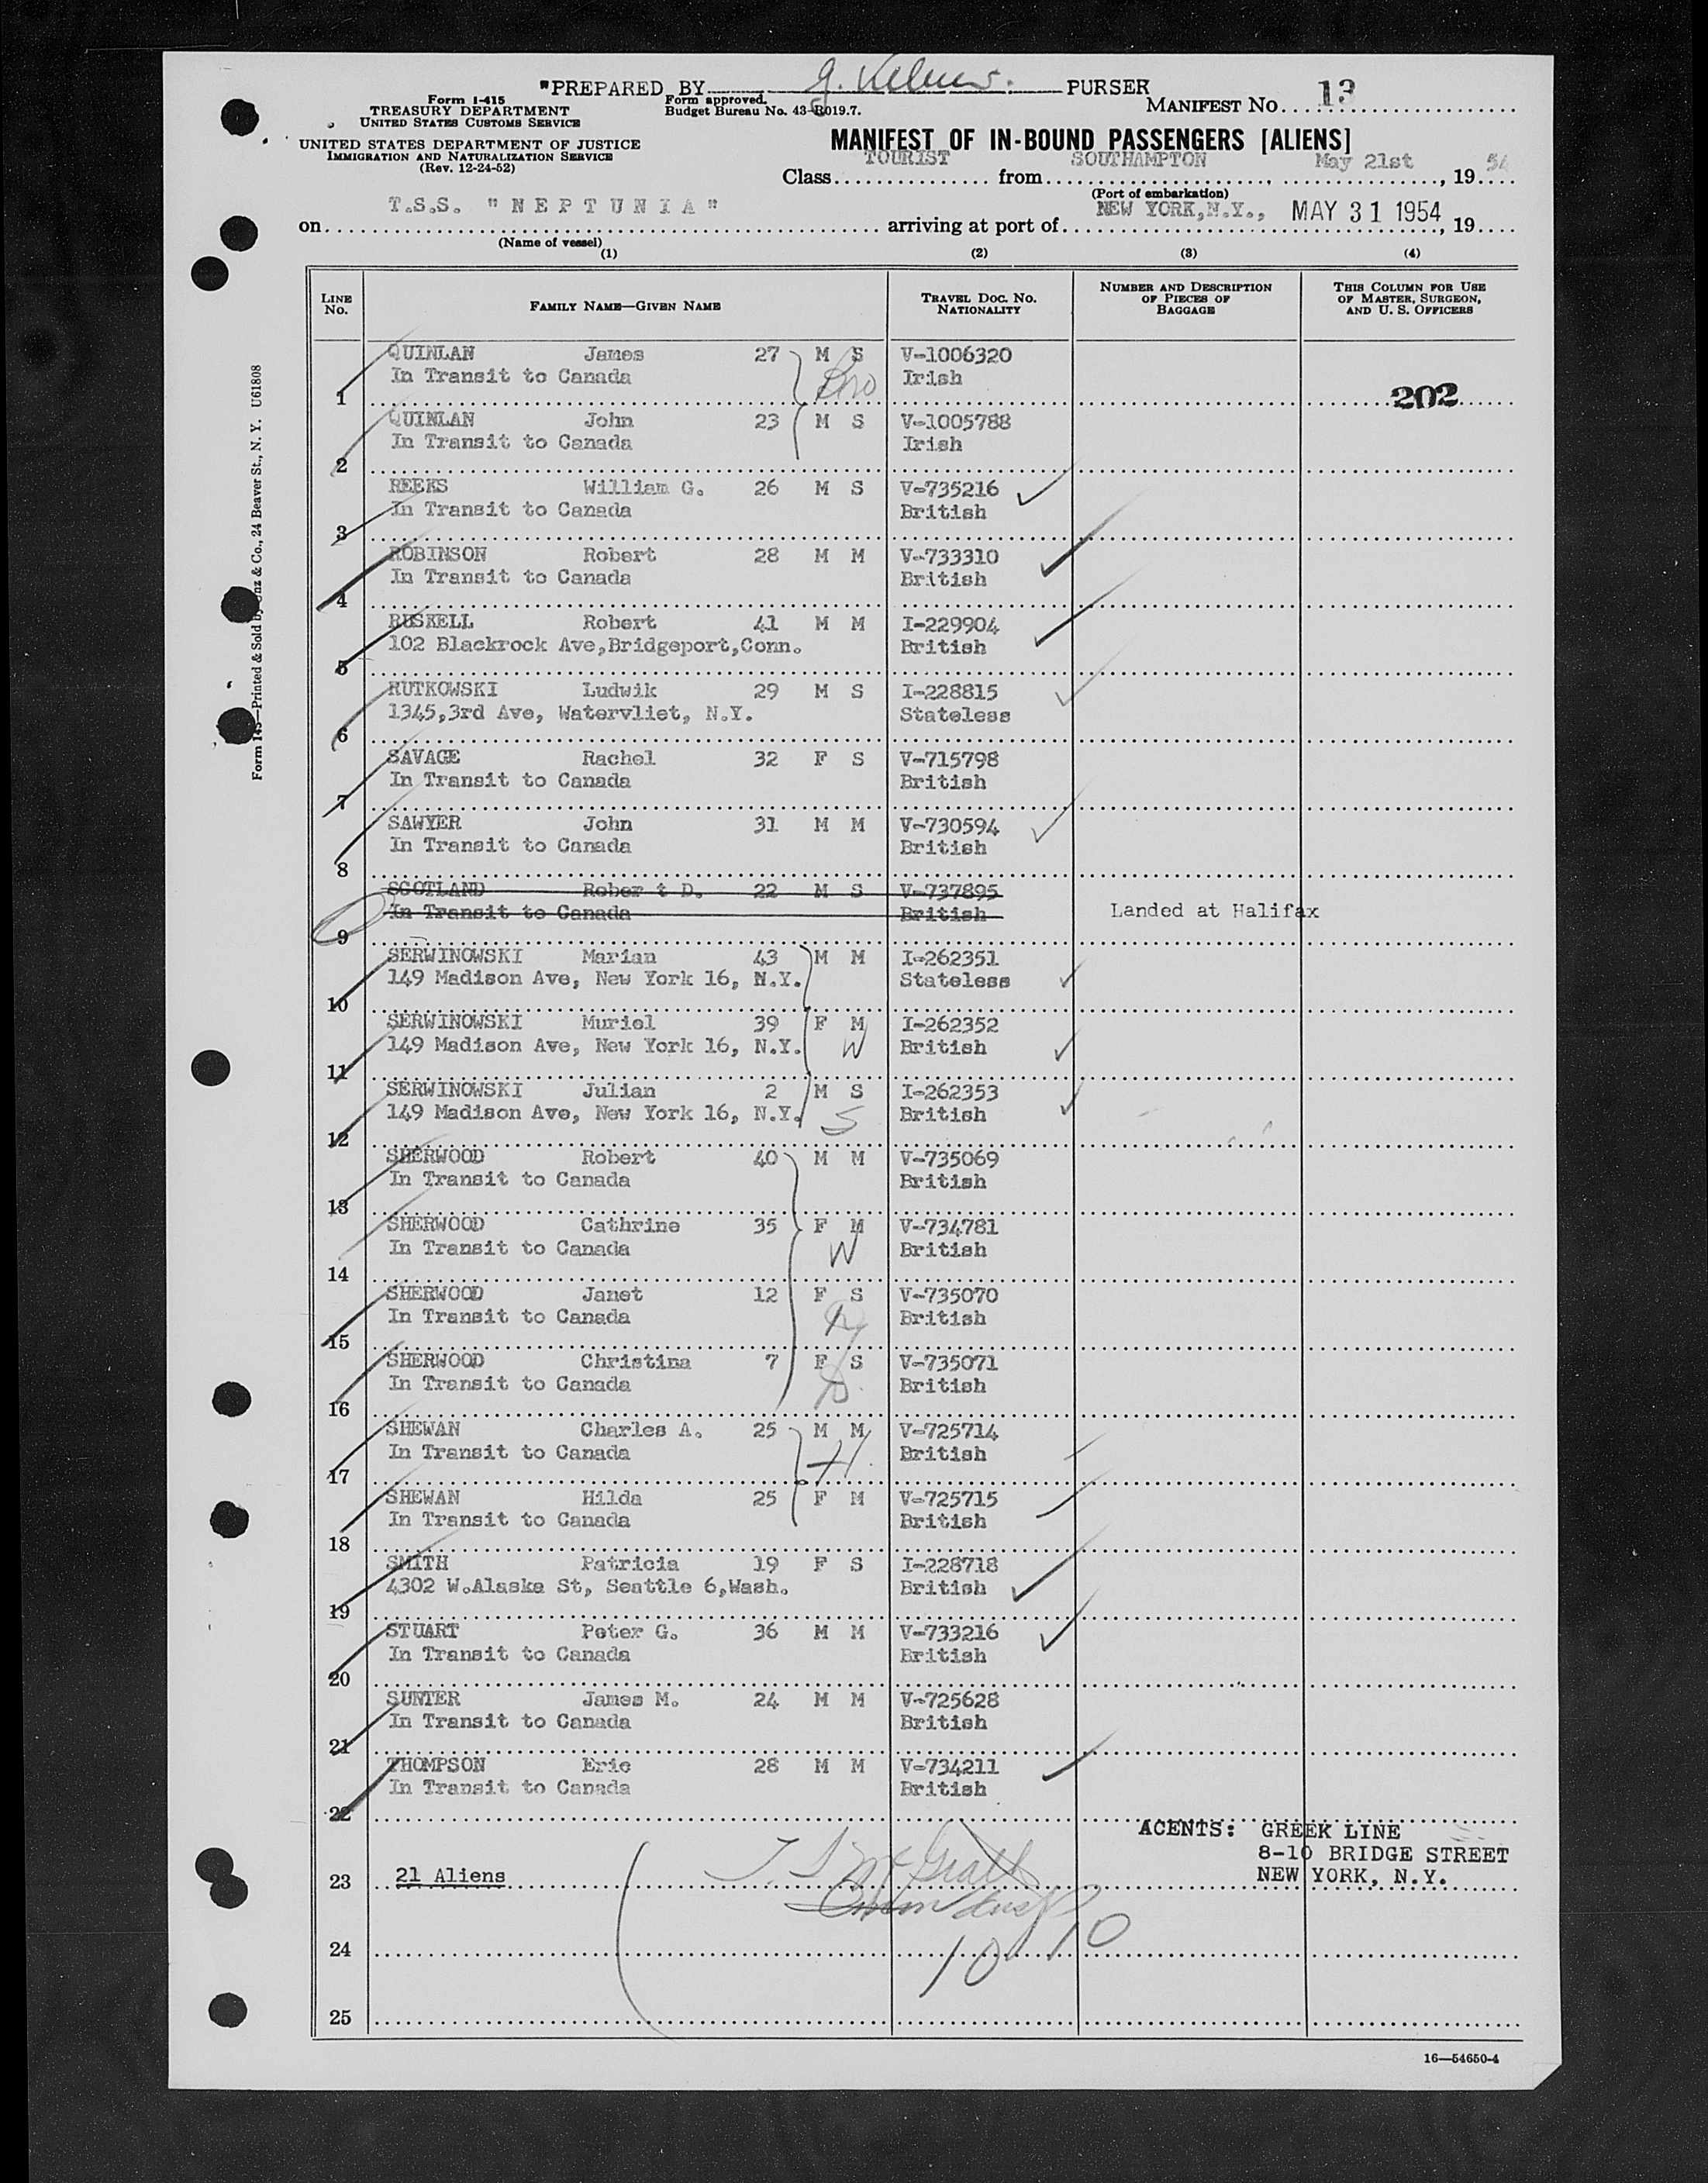 "PREPARED BY PURSER
Form 1-415
TREASURY DEPARTMENT
UNITED STATES CUSTOMS SERVICE
Form approved.
Budget Bureau No. 43-R019.7.
MANIFEST NO. 13
UNITED STATES DEPARTMENT OF JUSTICE
IMMIGRATION AND NATURALIZATION SERVICE
(Rev. 12-24-52)
MANIFEST OF IN-BOUND PASSENGERS [ALIENS]
Class TOURIST from SOUTHAMPTON, May 21st, 1954
(Port of embarkation)
on T.S.S. "NEPTUNIA" arriving at port of NEW YORK,N.Y., MAY 31 1954, 19
(Name of vessel)
(1) (2) (3) (4)
LINE NO. FAMILY NAME—GIVEN NAME TRAVEL DOC. NO. NATIONALITY NUMBER AND DESCRIPTION OF PIECES OF BAGGAGE THIS COLUMN FOR USE OF MASTER, SURGEON, AND U. S. OFFICERS
QUINLAN James 27 M S V-1006320
In Transit to Canada Bro Irish
1 202
QUINLAN John 23 M S V-1005788
In Transit to Canada Irish
2
REEKS William G. 26 M S V-735216
In Transit to Canada British
3
ROBINSON Robert 28 M M V-733310
In Transit to Canada British
4
RUSKELL Robert 41 M M I-229904
102 Blackrock Ave,Bridgeport,Conn. British
5
RUTKOWSKI Ludwik 29 M S I-228815
1345,3rd Ave, Watervliet, N.Y. Stateless
6
SAVAGE Rachel 32 F S V-715798
In Transit to Canada British
7
SAWYER John 31 M M V-730594
In Transit to Canada British
8
SCOTLAND Rober t D. 22 M S V-737895
In Transit to Canada British Landed at Halifax
9
SERWINOWSKI Marian 43 M M I-262351
149 Madison Ave, New York 16, N.Y. Stateless
10
SERWINOWSKI Muriel 39 F M I-262352
149 Madison Ave, New York 16, N.Y. W British
11
SERWINOWSKI Julian 2 M S I-262353
149 Madison Ave, New York 16, N.Y. S British
12
SHERWOOD Robert 40 M M V-735069
In Transit to Canada British
13
SHERWOOD Cathrine 35 F M V-734781
In Transit to Canada W British
14
SHERWOOD Janet 12 F S V-735070
In Transit to Canada British
15
SHERWOOD Christina 7 F S V-735071
In Transit to Canada British
16
SHEWAN Charles A. 25 M M V-725714
In Transit to Canada H. British
17
SHEWAN Hilda 25 F M V-725715
In Transit to Canada British
18
SMITH Patricia 19 F S I-228718
4302 W.Alaska St, Seattle 6,Wash. British
19
STUART Peter G. 36 M M V-733216
In Transit to Canada British
20
SUNTER James M. 24 M M V-725628
In Transit to Canada British
21
THOMPSON Eric 28 M M V-734211
In Transit to Canada British
22
AGENTS: GREEK LINE
8-10 BRIDGE STREET
23 21 Aliens NEW YORK, N.Y.
24 10 10
25
16—54650-4
Form 145—Printed & Sold by Unz & Co., 24 Beaver St., N. Y. U61808